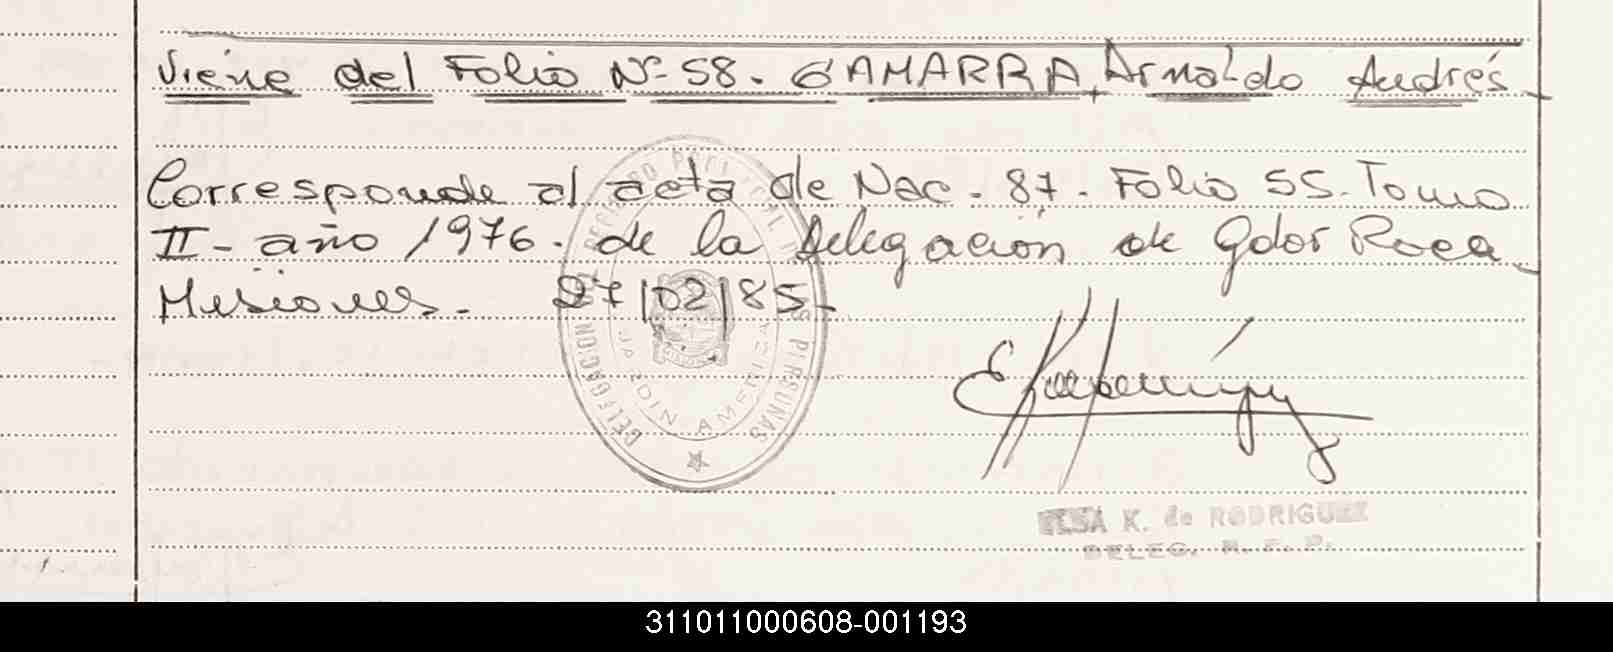 Viene del Folio Nº 58. GAMARRA, Arnaldo Andrés
Corresponde al acta de Nac. 87. Folio 55. Tomo
II - año 1976. de la Delegación de Gdor Roca
Misiones. 27/02/85.-
DELEGACION DEL REGISTRO PROVINCIAL DE LAS PERSONAS
JARDIN AMERICA
ELSA K. de RODRIGUEZ
DELEG. R. P. P.
311011000608-001193